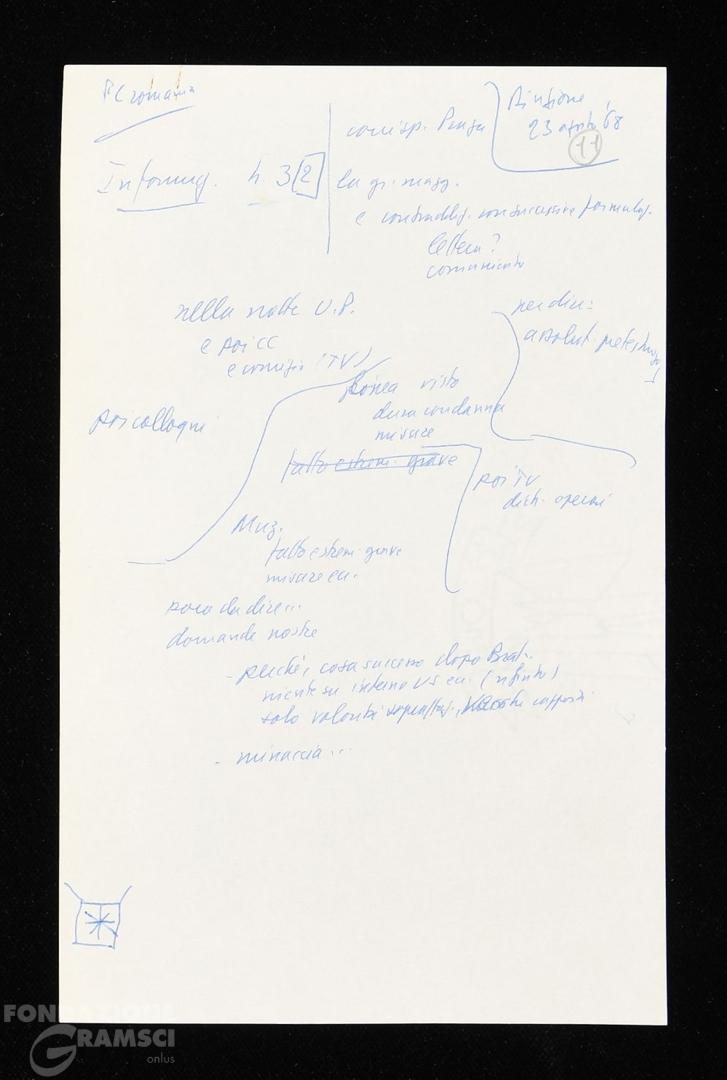 PC romania
Informaz. h 3 2
corrisp. Praga
la gr. magg.
e contraddiz. con successive formulaz.
lettera?
comunicato
Riunione
23 agosto '68
11
nella notte U.P.
e poi CC
e comizio (TV)
per dire:
assolut. pretestuoso
poi colloqui
Ponea visto
dura condanna
misure
fatto estrem. grave
poi TV
dich. operai
Muz.
fatto estrem. grave
misure ecc.
poco da dire...
domande nostre
- perché, cosa successo dopo Brat.
niente su interno US ecc. (rifiuto)
solo volontà rapporti
- minaccia...
FONDAZIONE
GRAMSCI
onlus